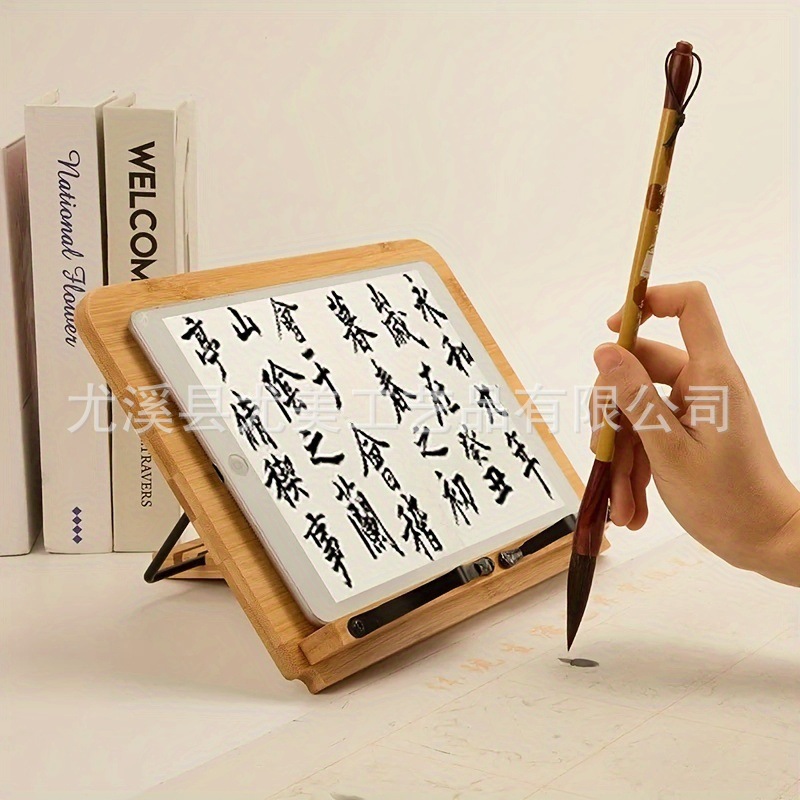 National Flower
WELCOM
TRAVERS
永和九年
歲在癸丑
暮春之初
會于會稽
山陰之蘭
亭脩禊事
尤溪县尤美工艺品有限公司